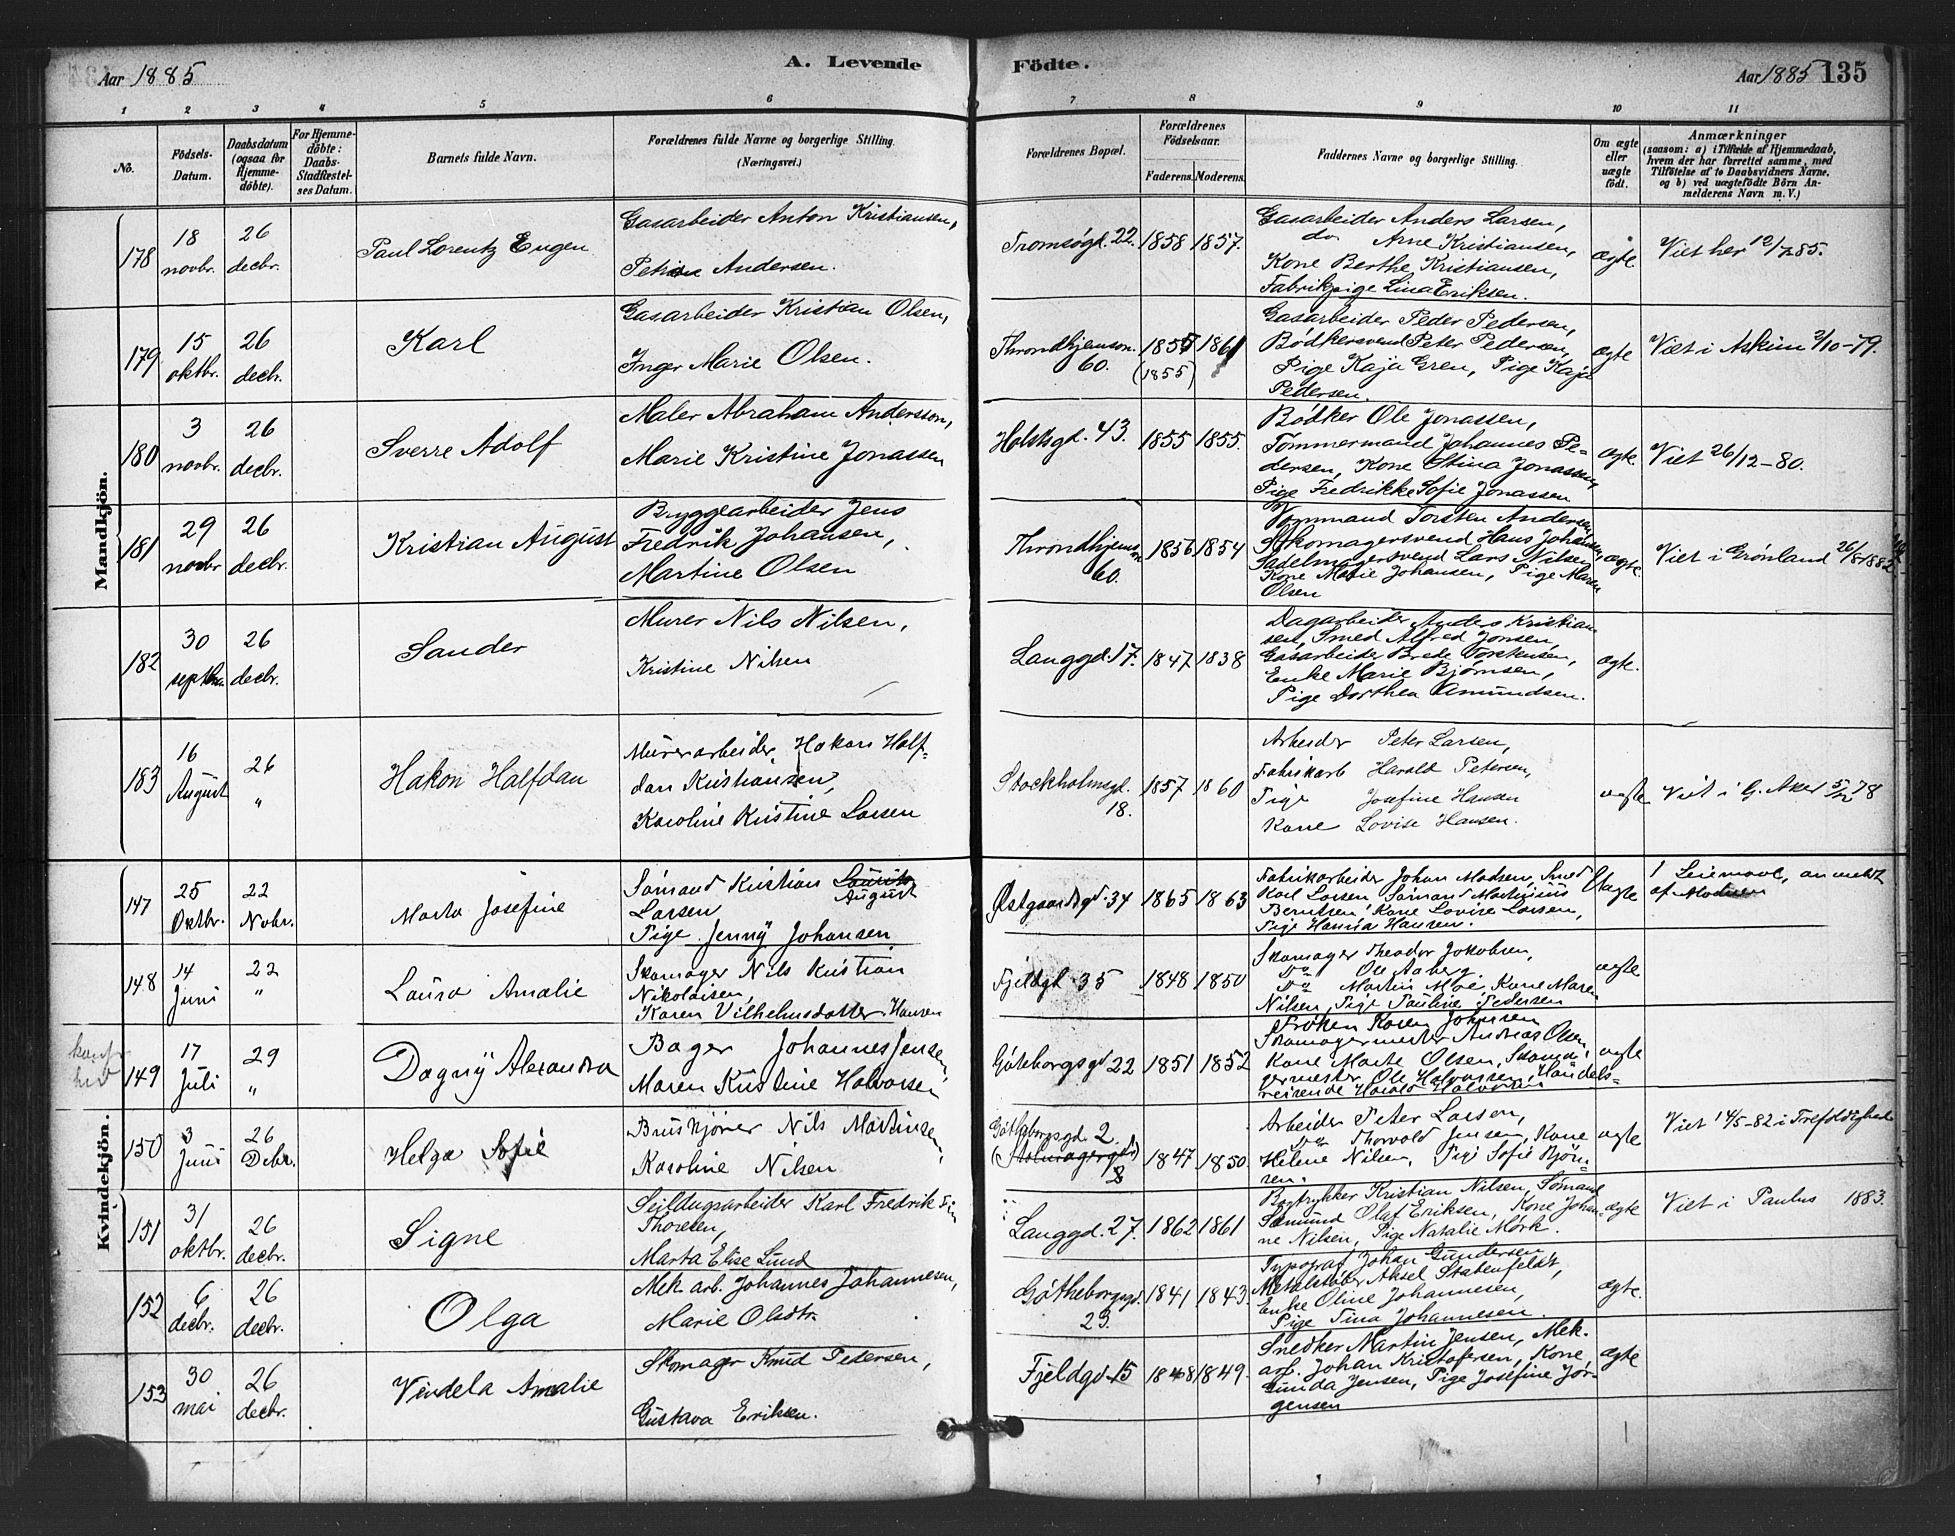 Aar 1885
A. Levende Födte.
Aar 1885 135
1 2 3 4 5 6 7 8 9 10 11
No.
Födsels-Datum.
Daabsdatum (ogsaa for Hjemme-döbte).
For Hjemme-döbte: Daabs-Stadfæstel-ses Datum.
Barnets fulde Navn.
Forældrenes fulde Navne og borgerlige Stilling. (Næringsvei.)
Forældrenes Bopæl.
Forældrenes Födselsaar.
Faderens. Moderens.
Faddernes Navne og borgerlige Stilling.
Om ægte eller uægte födt.
Anmærkninger
(saasom: a) i Tilfælde af Hjemmedaab, hvem der har forrettet samme, med Tilföielse af to Daabsvidners Navne, og b) ved uægtefödte Börn An-melderens Navn m. V.)
Mandkjön.
178
18 novbr.
26 decbr.
Paul Lorentz Eugen
Gasarbeider Anton Kristiansen,
Andersen.
Tromsøgd. 22.
1858 1857.
Gasarbeider Anders Larsen,
do Arne Kristiansen,
Kone Berthe Kristiansen,
Fabrikpige Lina Eriksen.
ægte
Viet her 12/7 85.
179
15 oktbr.
26 decbr.
Karl
Gasarbeider Kristian Olsen,
Inger Marie Olsen.
Throndhjemsv. 60.
1855 (1855) 1861
Gasarbeider Peder Pedersen,
Bødkersvend Peter Pedersen,
Pige Kaja Gren, Pige Kaja
Pedersen.
ægte
Viet i Askim 3/10-79.
180
3 novbr.
26 decbr.
Sverre Adolf
Maler Abraham Andersson,
Marie Kristine Jonassen
Holstsgd. 43.
1855 1855.
Bødker Ole Jonassen,
Tømmermand Johannes Pe-
dersen, Kone Stina Jonassen,
Pige Fredrikke Sofie Jonassen
ægte.
Viet 26/12-80.
181
29 novbr
26 decbr.
Kristian August
Bryggearbeider Jens
Fredrik Johansen,
Martine Olsen
Throndhjemsv. 60.
1856 1854
Tommand Torsten Andersen
Skomagersvend Hans Johansen,
Sadelmagersvend Lars Nilsen
Kone Marie Johansen, Pige Maren
Olsen
ægte.
Viet i Grønland 26/8 1882
182
30 septbr.
26 decbr.
Sander
Murer Nils Nilsen,
Kristine Nilsen
Langgd. 17.
1847 1838
Dagarbeider Anders Kristian-
sen, Smed Alfred Jonsen,
Gasarbeider Brede Torstensen,
Enke Marie Bjørnsen,
Pige Dorthea Amundsen.
ægte.
183
16 August
26 "
Hakon Halfdan
Murerarbeider Hakon Half-
dan Kristiansen,
Karoline Kristine Larsen
Stockholmsgd. 18.
1857 1860
Arbeider Peter Larsen,
Fabrikarb Harald Petersen,
Pige Josefine Hansen
Kone Lovise Hansen.
ægte
Viet i G. Aker 5/12 78
Kvindekjön.
147
25 Oktbr.
22 Novbr.
Marta Josefine
Sømand Kristian Laurits August
Larsen
Pige Jenny Johansen
Østgaardsgd. 34
1865 1863
Fabrikarbeider Johan Madsen, Smed
Karl Larsen, Sømand Martinius
Berntsen, Kone Lovise Larsen,
Pige Hanna Hansen.
Uægte
1 Leiermaal, anmeldt
af Moderen
148
14 Juni
22 "
Laura Amalie
Skomager Nils Kristian
Nikolaisen,
Karen Vilhelmsdatter Hansen
Fjeldgd. 35
1848 1850
Skomager Theodor Jakobsen,
Do Ole Aaberg
Do Martin Moe, Kone Maren
Nilsen, Pige Pauline Pedersen
ægte
149
17 Juli
29 "
Dagny Alexandra
Bager Johannes Jensen,
Maren Kristine Halvorsen
Göteborgsgd 22
1851 1852
Frøken Karen Johansen
Skomagermester Andreas Olsen,
Kone Marte Olsen, Skoma-
germester Ole Halvorsen, Handels-
reisende Harald Halvorsen
ægte
150
3 Juni
26 Debr.
Helga Sofie
Bruskjører Nils Martinsen,
Karoline Nilsen
Gøtheborgsgd. 2.
1847 1850.
Arbeider Peter Larsen,
Do Thorvald Jensen, Kone
Helene Nilsen, Pige Sofie Bjørn-
sen.
ægte
Viet 14/5-82 i Trefoldighed
151
31 oktbr.
26 decbr.
Signe
Seildugsarbeider Karl Fredrik
Thoresen,
Marta Elise Lund
Langgd. 27.
1862 1861
Bogtrykker Kristian Nilsen, Sømand
Olaf Eriksen, Kone Johan-
ne Nilsen, Pige Natalie Mørk.
ægte
Viet i Paulus 1883.
152
6 decbr.
26 decbr.
Olga
Mek. arb. Johannes Johannesen,
Marie Olsdtr.
Gøtheborgsgd. 23.
1841 1843.
Typograf Johan Gundersen
Metalstøber Aksel Stabenfeldt,
Enke Oline Johannesen,
Pige Tina Johannesen.
ægte.
153
30 mai
26 decbr.
Vindela Amalie
Skomager Knud Petersen,
Gustava Eriksen.
Fjeldgd. 15
1848 1849.
Snedker Martin Jensen, Mek.
arb. Johan Kristofersen, Kone
Gunda Jensen, Pige Josefine Jør-
gensen
ægte